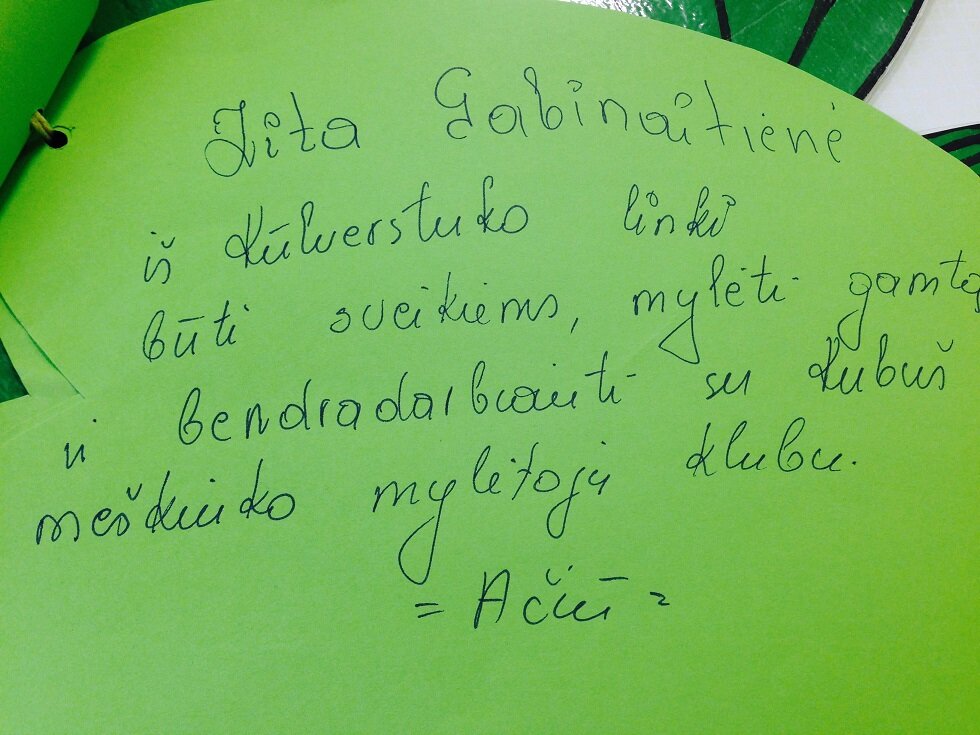 Zita Gabinaitienė
iš Kūlverstuko linki
būti sveikiems, mylėti gamtą
ir bendradarbiauti su Kubuš
meškiuko mylėtojų klubu.
= Ačiū =